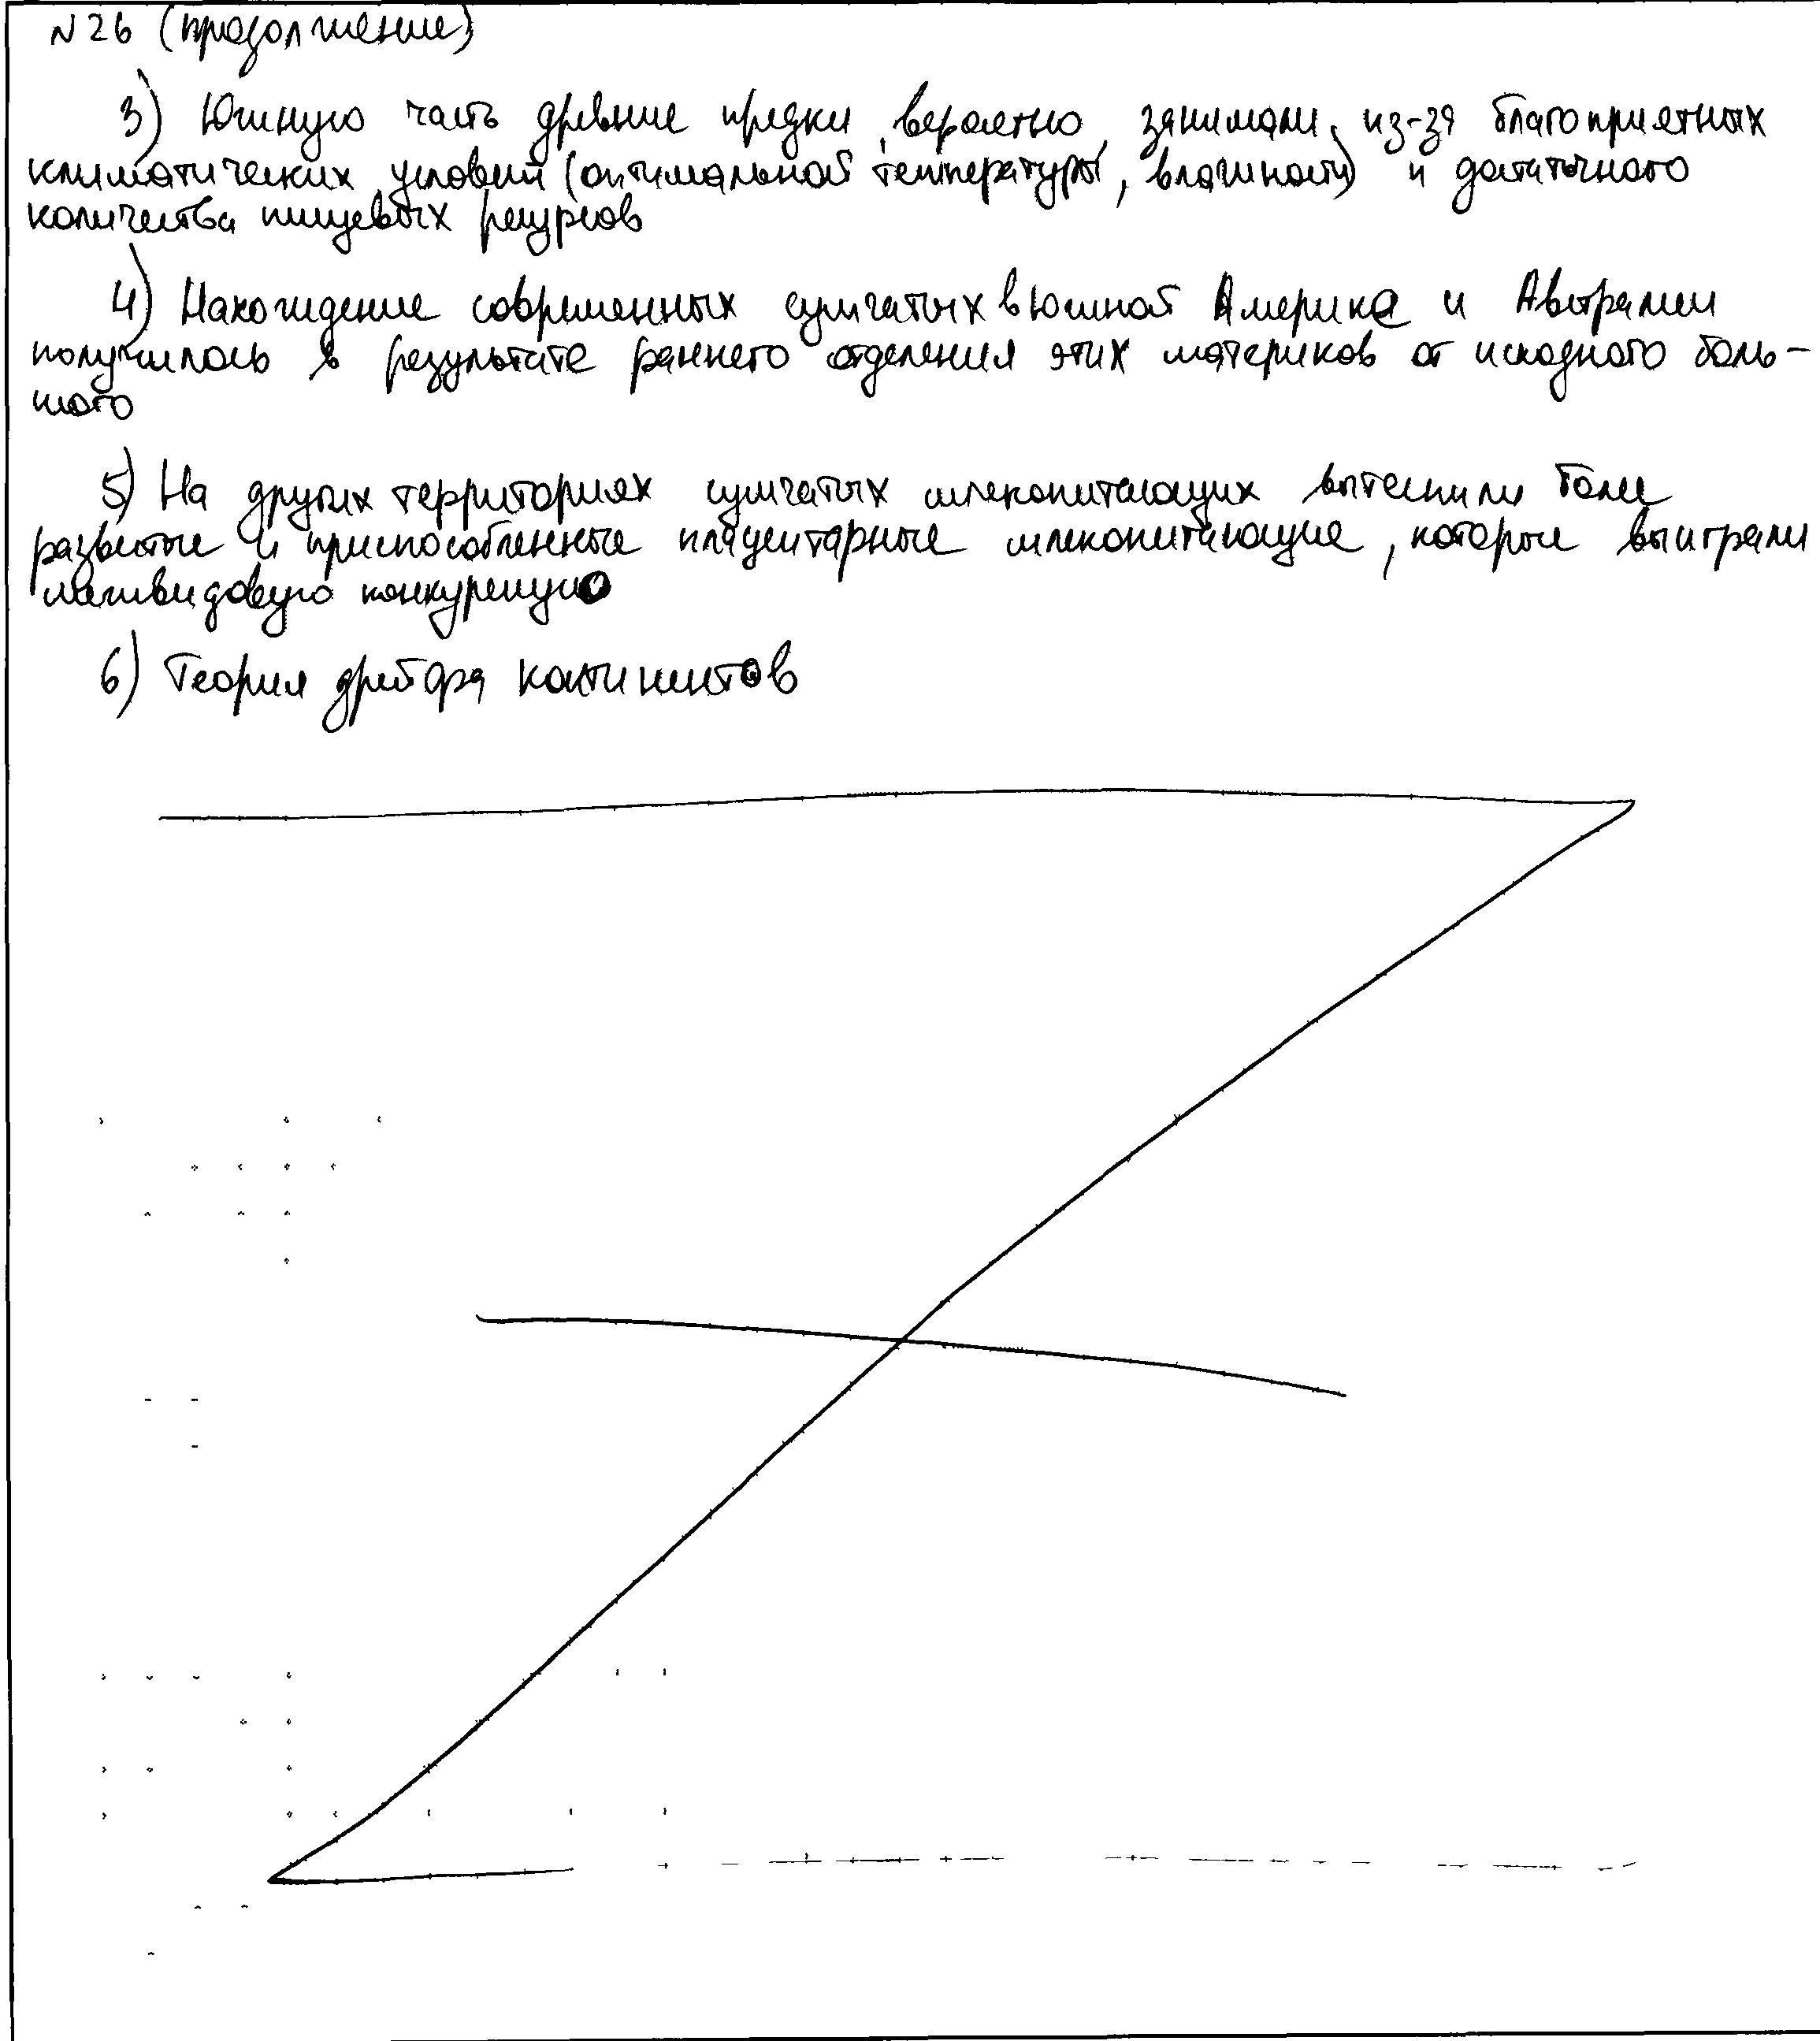 №26 (продолжение)
3) Южную часть древние предки, вероятно, занимали, из-за благоприятных
климатических условий (оптимальной температуры, влажности) и достаточного
количества пищевых ресурсов
4) Нахождение современных сумчатых в Южной Америке и Австралии
получилось в результате раннего отделения этих материков от исходного боль-
шого
5) На других территориях сумчатых млекопитающих вытеснили более
развитые и приспособленные плацентарные млекопитающие, которые выиграли
межвидовую конкуренцию
6) Теория дрейфа континентов